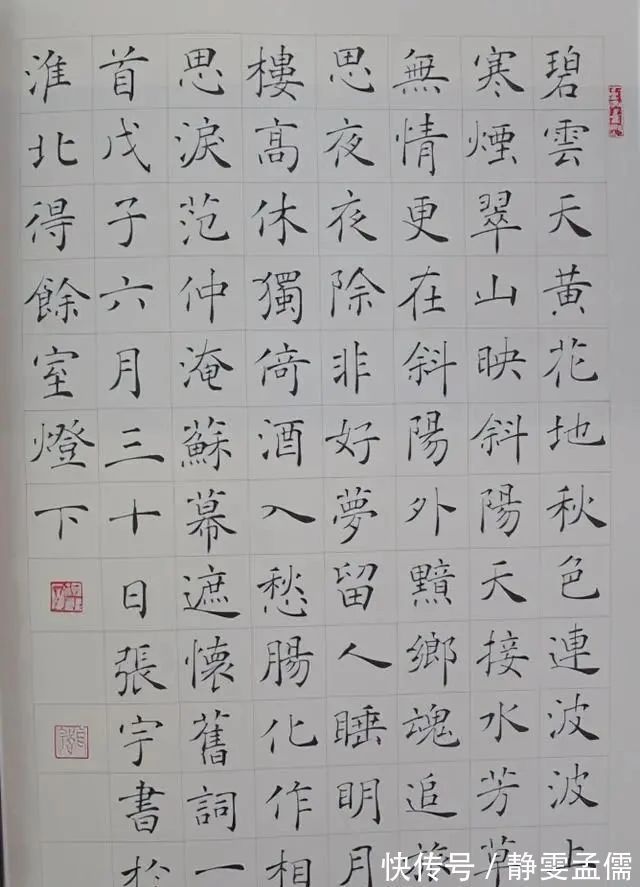 碧雲天黃花地秋色連波波上
寒煙翠山映斜陽天接水芳草
無情更在斜陽外黯鄉魂追旅
思夜夜除非好夢留人睡明月
樓高休獨倚酒入愁腸化作相
思淚范仲淹蘇幕遮懷舊詞一
首戊子六月三十日張宇書於
淮北得餘室燈下
快传号 / 静雯孟儒